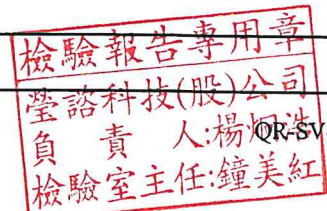 檢驗報告專用章
瑩諮科技(股)公司
負責人:楊烱浩
QR-SV
檢驗室主任:鐘美紅